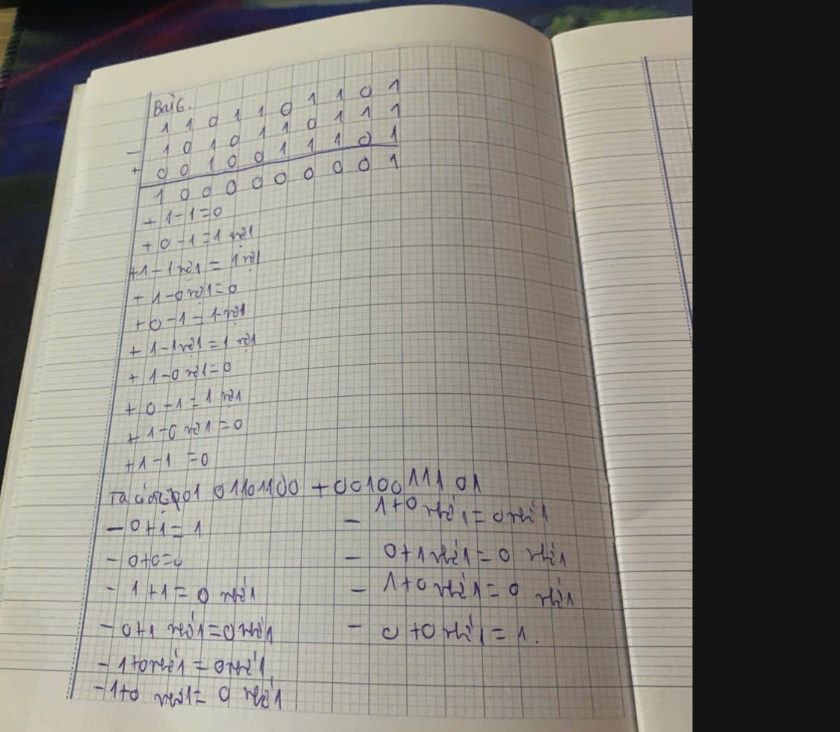 Bài 6.
1 1 0 1 1 0 1 1 0 1
- 1 0 1 0 1 1 0 1 1 1
+ 0 0 1 0 0 1 1 1 0 1
1 0 0 0 0 0 0 0 0 1
+ 1-1=0
+ 0-1=1 nợ1
+1-1nợ1 = 1nợ1
+ 1-0nợ1=0
+ 0-1=1nợ1
+ 1-1nợ1=1 nợ1
+ 1-0 nợ1=0
+ 0-1=1 nợ1
+ 1-0 nợ1=0
+1-1 =0
Ta có 01 01101100 +0010011101
- 0+1=1
- 0+0=0
- 1+1= 0 nhớ1
- 0+1 nhớ1=0nhớ1
- 1+0nhớ1 = 0nhớ1
- 1+0 nhớ1= 0 nhớ1
- 1+0 nhớ1=0nhớ1
- 0+1nhớ1=0 nhớ1
- 1+0nhớ1=0 nhớ1
- 0+0nhớ1=1.